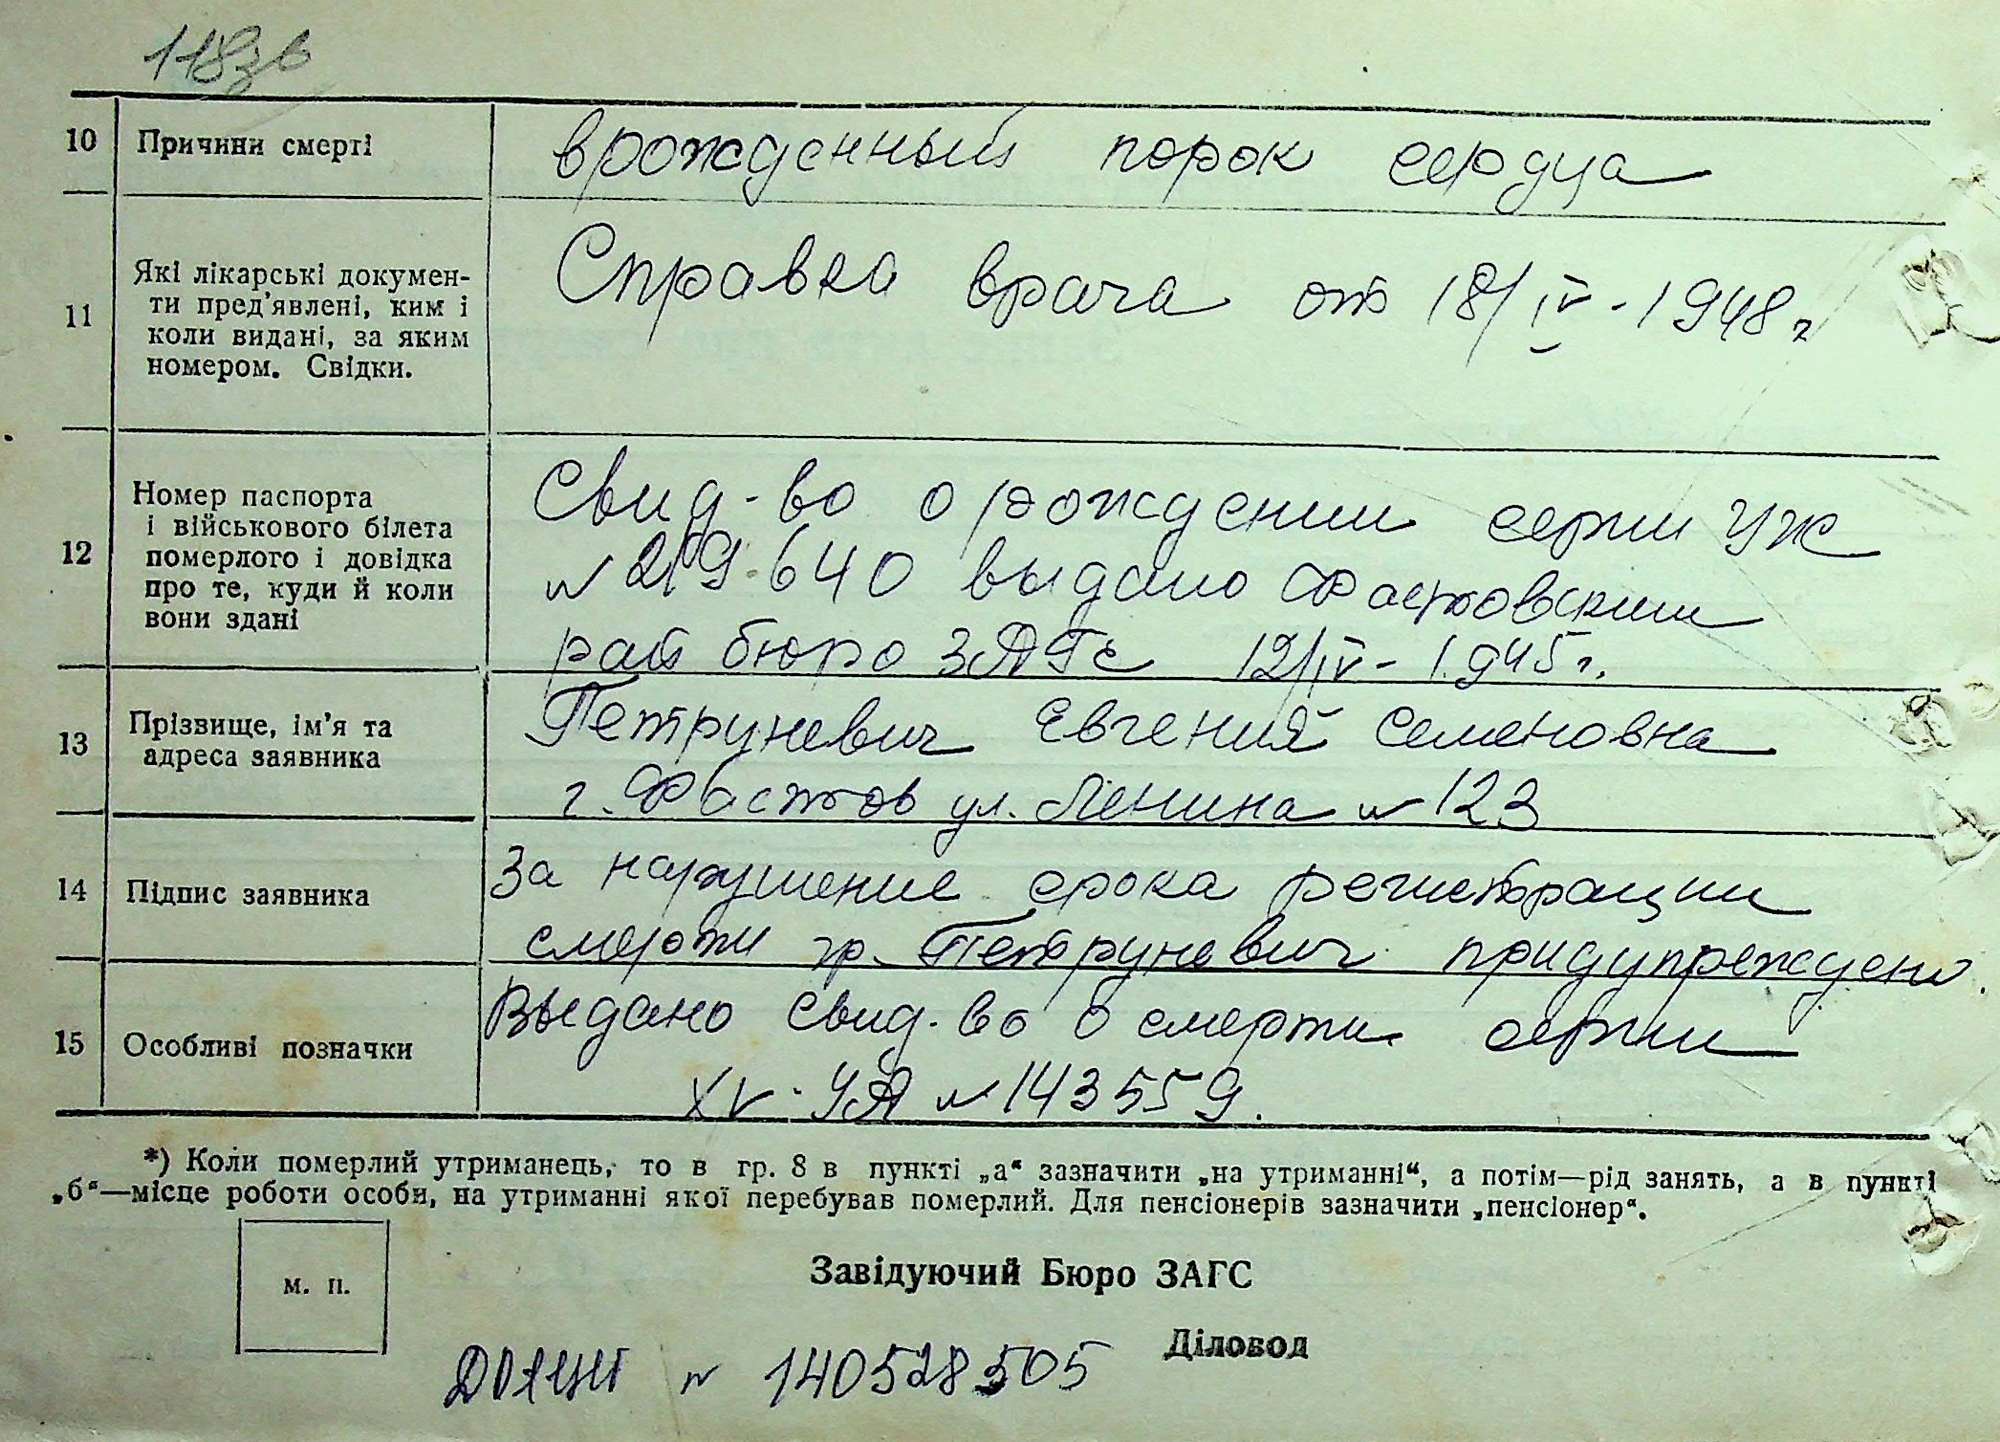 118зв
10 Причини смерті врожденный порок сердца
11 Які лікарські докумен-
ти пред'явлені, ким і
коли видані, за яким
номером. Свідки.
Справка врача от 18/IV-1948 г
12 Номер паспорта
і військового білета
померлого і довідка
про те, куди й коли
вони здані
Свид-во о рождении серии УЖ
№ 219640 выдано Фастовским
рай бюро ЗАГС 12/IV-1945 г.
13 Прізвище, ім'я та
адреса заявника
Петруневич Евгения Семеновна
г. Фастов ул. Ленина № 123
14 Підпис заявника
За нарушение срока регистрации
смерти гр. Петруневич придупреждено.
15 Особливі позначки
Выдано свид-во о смерти серии
XV-УА № 143559.
*) Коли померлий утриманець, то в гр. 8 в пункті „а“ зазначити „на утриманні“, а потім—рід занять, а в пункті
„б“—місце роботи особи, на утриманні якої перебував померлий. Для пенсіонерів зазначити „пенсіонер“.
м. п.
Завідуючий Бюро ЗАГС
Діловод
№ 140528505